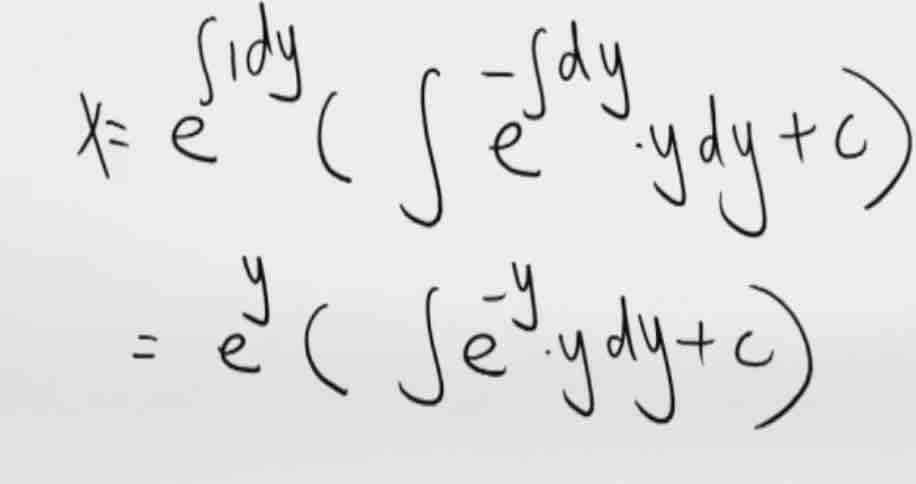 x= e^{∫1dy} ( ∫ e^{-∫dy} ·y dy + c )
= e^{y} ( ∫ e^{-y} ·y dy + c )